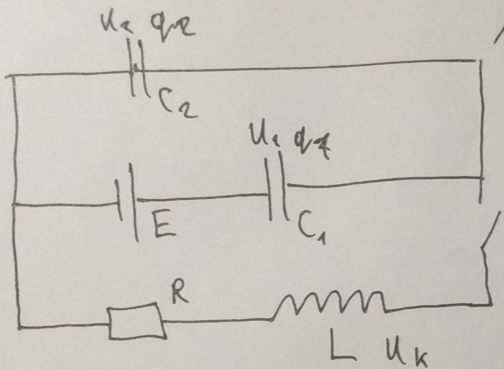 U₂ q₂
C₂
U₁ q₁
E
C₁
R
L U_K